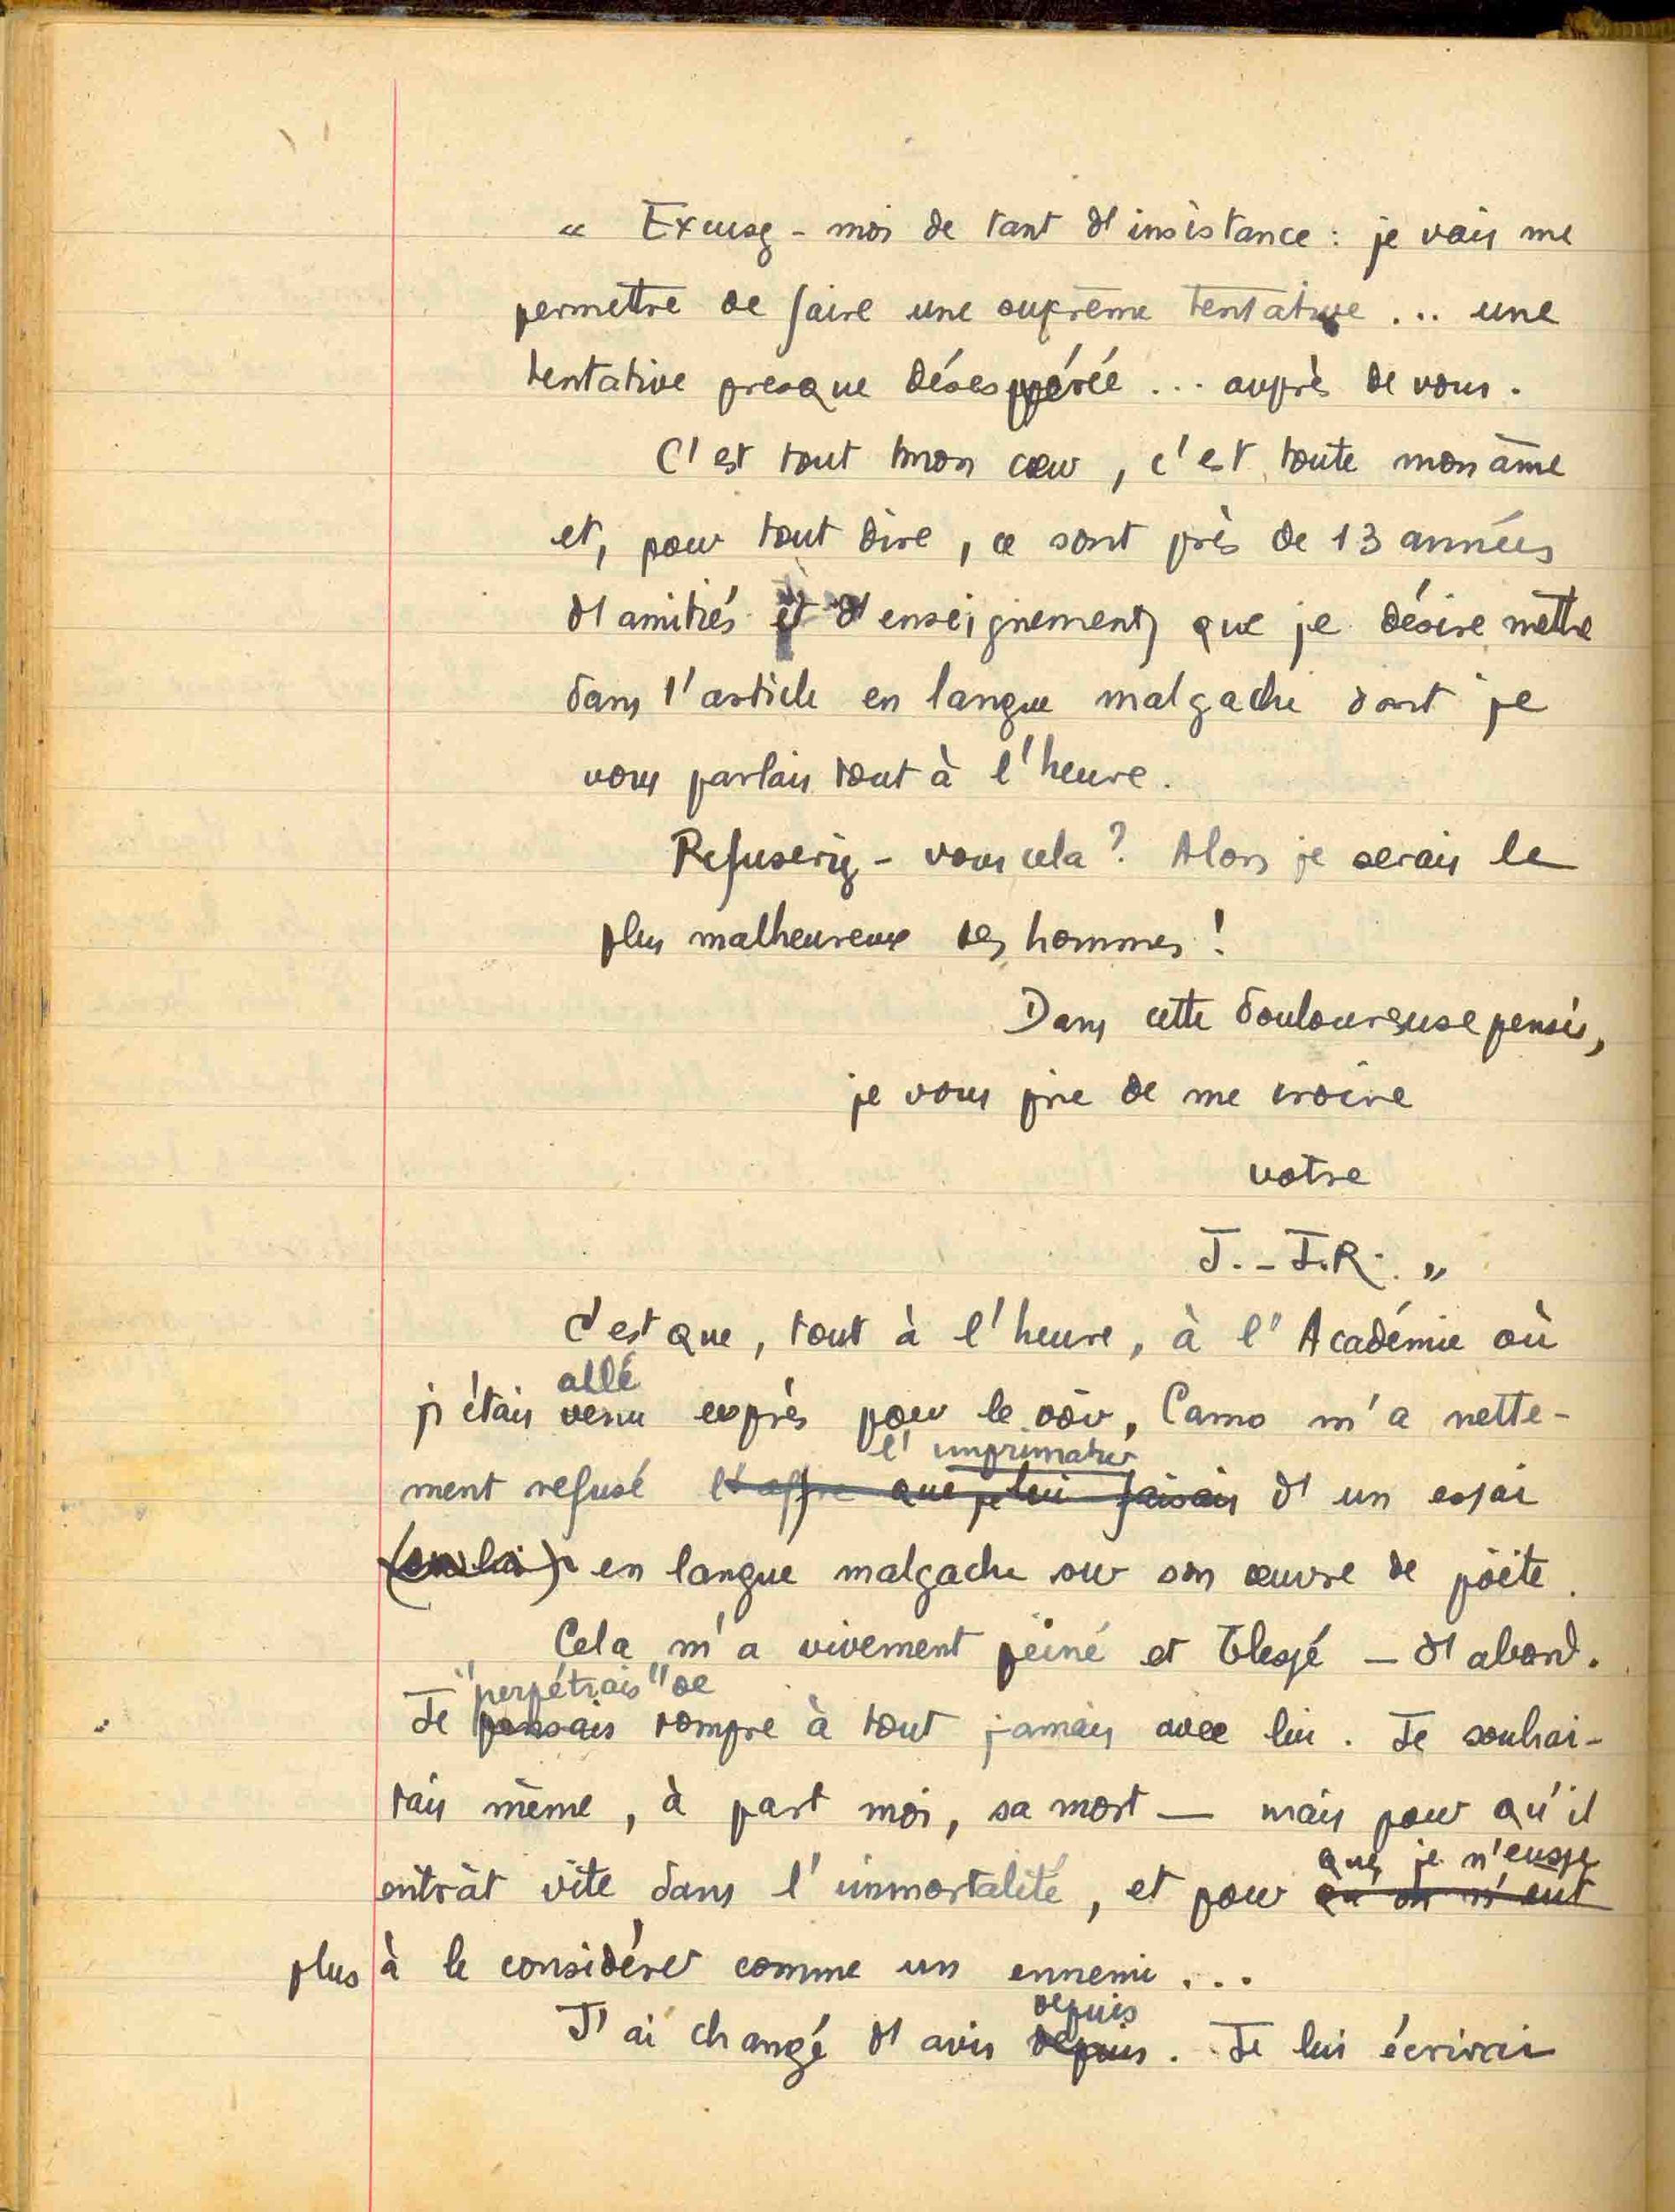 « Excusez-moi de tant d'insistance : je vais me
permettre de faire une suprême tentative ... une
tentative presque désespérée ... auprès de vous.
C'est tout mon cœur, c'est toute mon âme
et, pour tout dire, ce sont près de 13 années
d'amitiés et d'enseignements que je désire mettre
dans l'article en langue malgache dont je
vous parlais tout à l'heure.
Refuseriez-vous cela ? Alors je serais le
plus malheureux des hommes !
Dans cette douloureuse pensée,
je vous prie de me croire
votre
J.-J.R. »
C'est que, tout à l'heure, à l'Académie où
allé
j'étais venu exprès pour le voir, Camo m'a nette-
l'imprimatur
ment refusé l'offre que je lui faisais d'un essai
(sur lui) en langue malgache sur son œuvre de poète.
Cela m'a vivement peiné et blessé — d'abord.
"perpétrais" de
Je pensais rompre à tout jamais avec lui. Je souhai-
tais même, à part moi, sa mort — mais pour qu'il
que je n'eusse
entrât vite dans l'immortalité, et pour qu'on n'eut
plus à le considérer comme un ennemi ...
depuis
J'ai changé d'avis depuis. Je lui écrirai